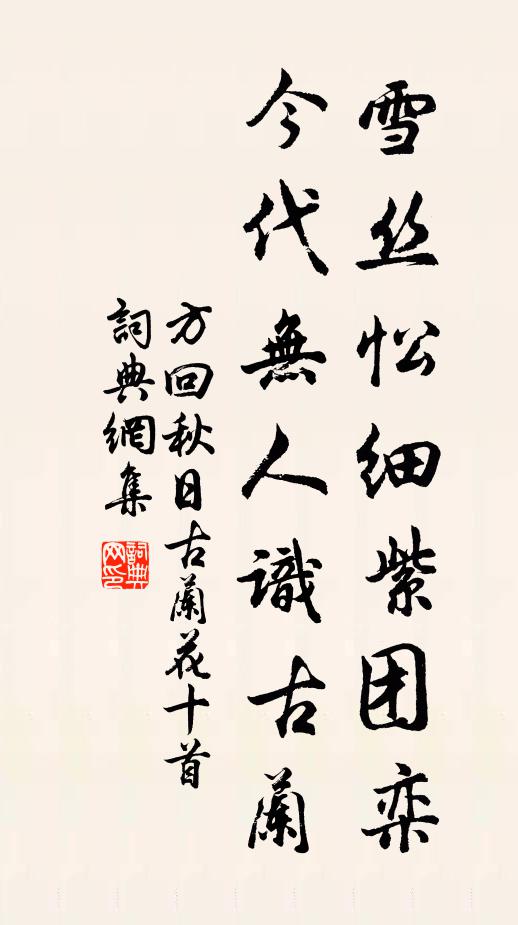 雪丝忪细紫团栾
今代無人識古蘭
方回秋日古蘭花十首
詞典網集
詞典网印